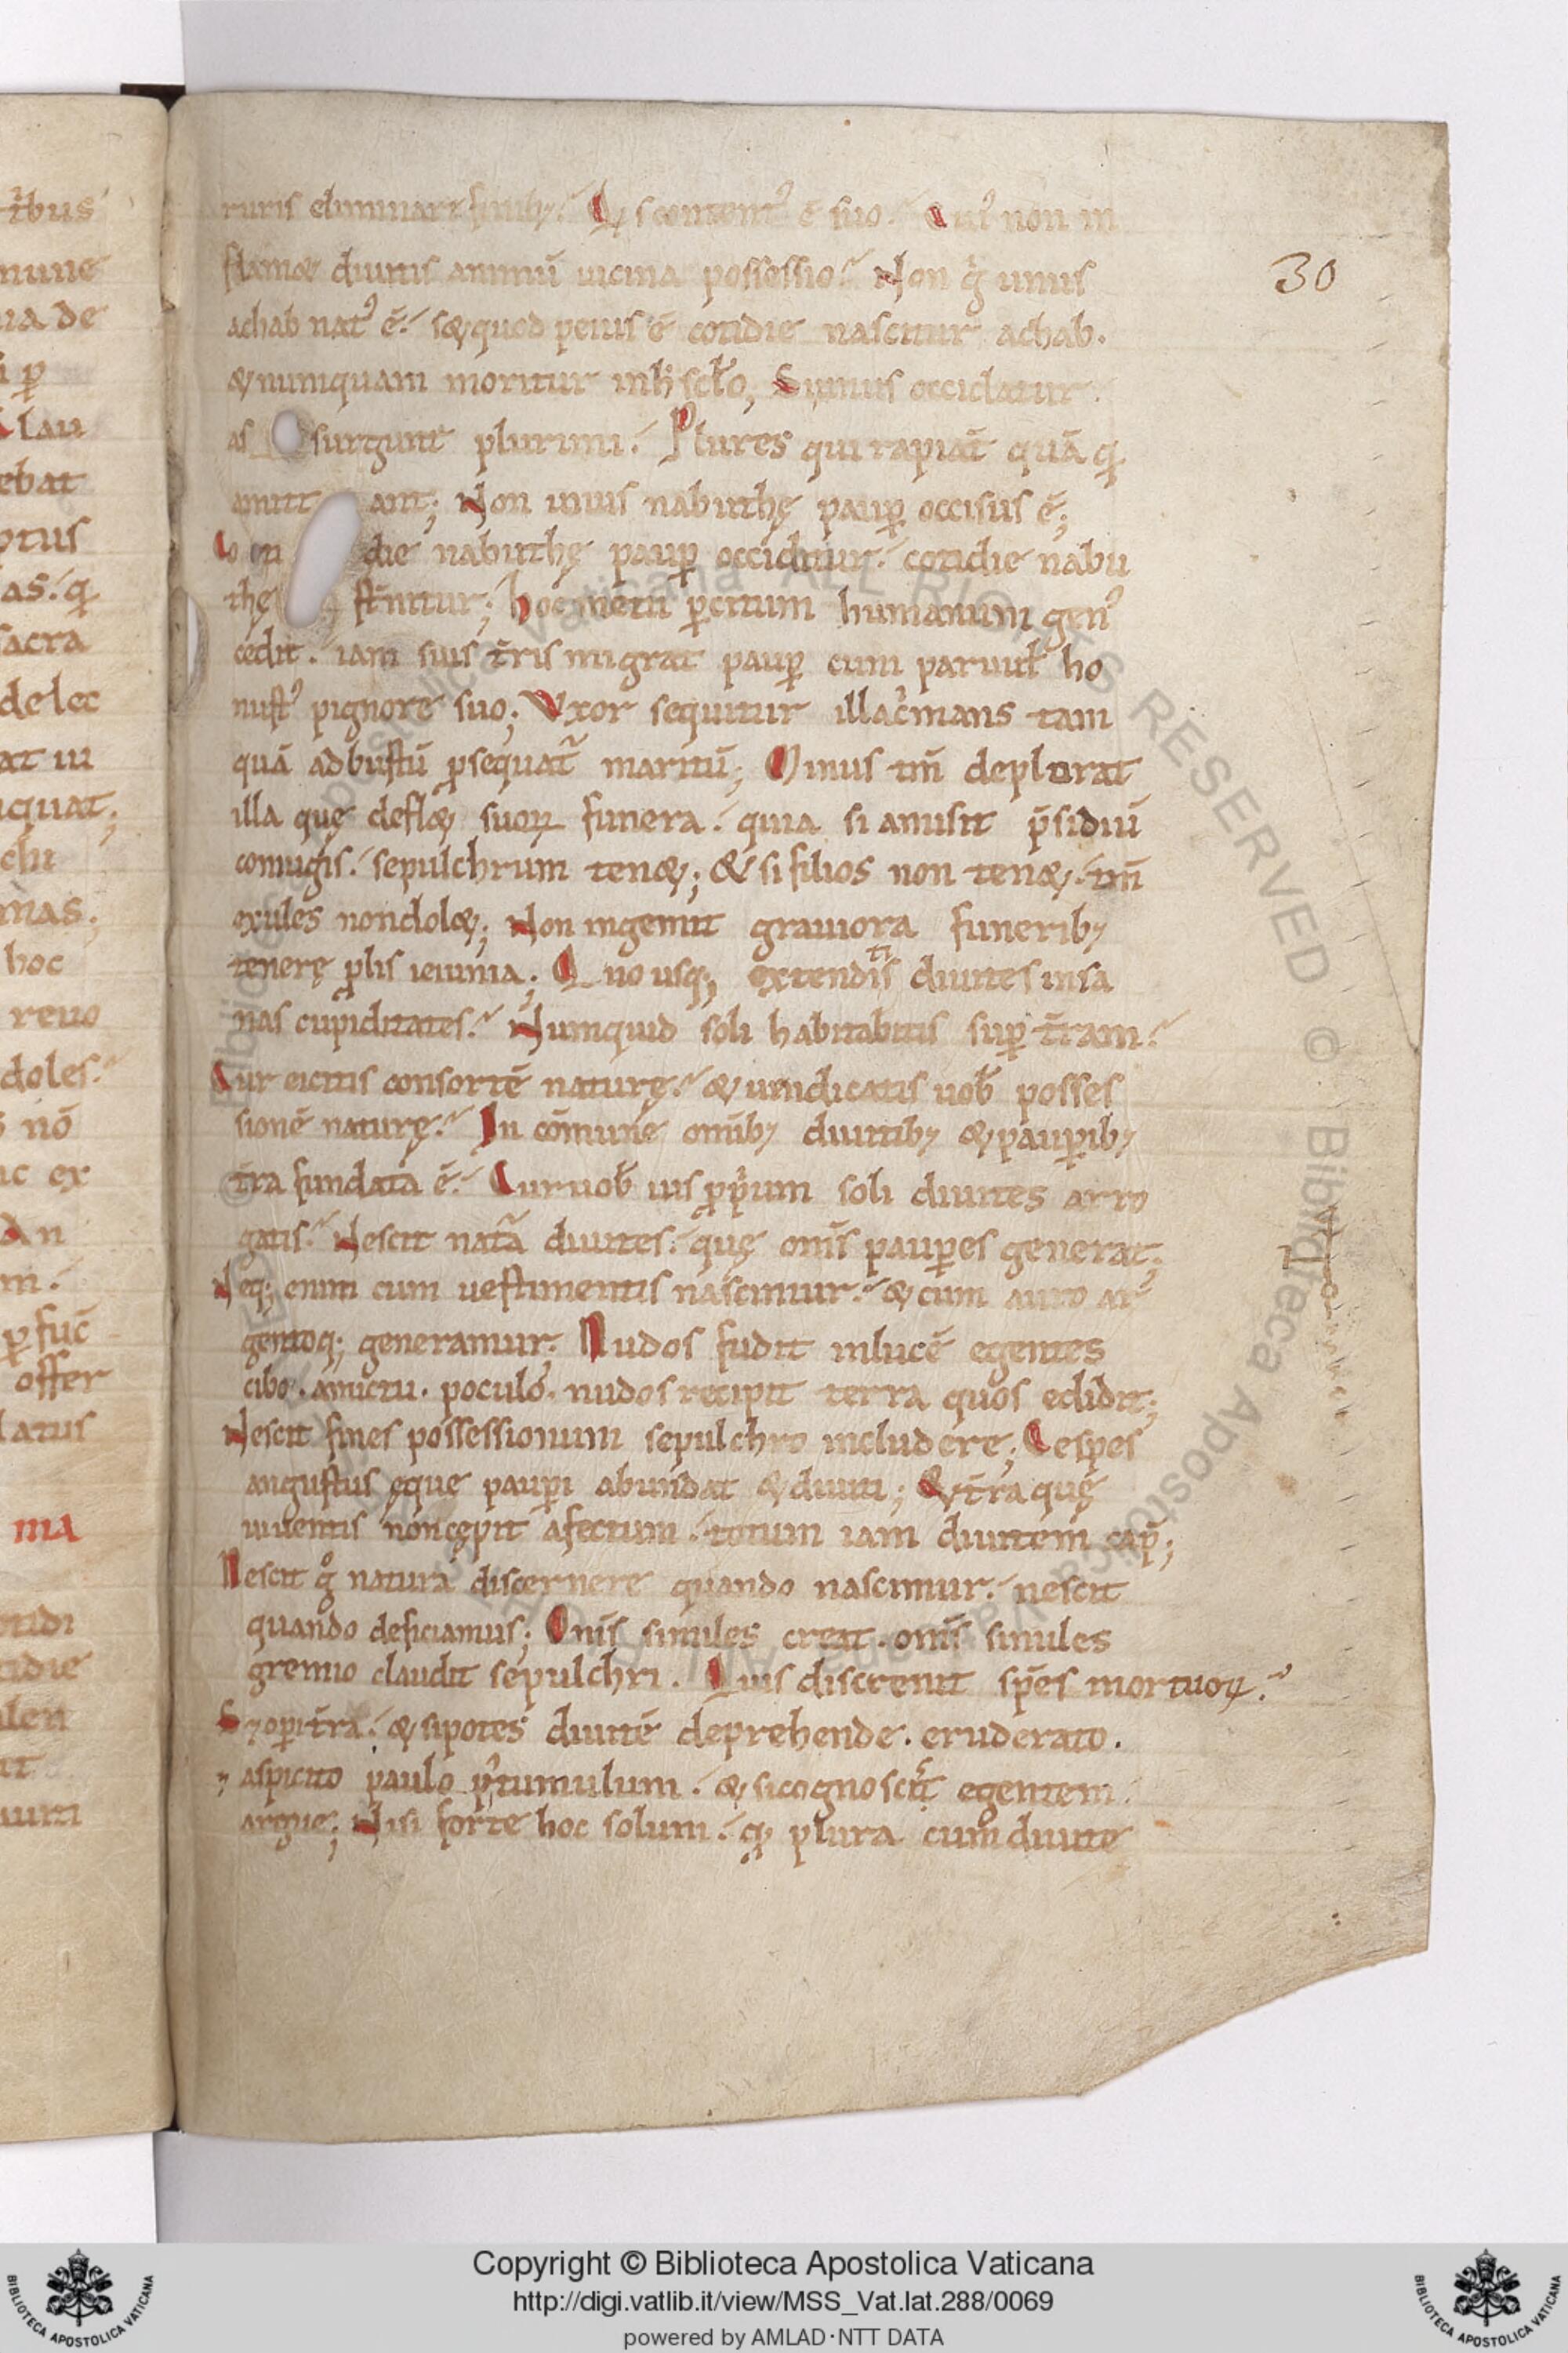 ruris eliminare finibꝫ. Quis content᷒ ē suo. Cui᷒ non in
flamæ diuitis animū uicina possessio. Non gͥ unus
achab nat᷒ ē. sꝫ quod peius ē cotidie nascitur achab.
& numquam moritur in h̄ sclō; Si unus occidatur
as surgunt plurimi. Plures qui rapiāt quā q̄
amitt ant; Non unus nabuthę paup̱ occisus ē;
Coti die nabuthę paup̱ occiditur. cotidie nabu
thę st̄nitur; hoc metū p̱citum humanum gen᷒
cedit. iam suis t̄ris migrat paup̱ cum paruul̄ ho
nust᷒ pignore suo; Vxor sequitur illacͥmans tam
quā ad bustū ꝓsequat᷑ maritū; Minus tm̄ deplorat
illa quę defl& suoꝝ funera. quia si amisit p̄sidiū
coniugis. sepulchrum ten&; & si filios non ten&. tm̄
exules non dol&; Non ingemit grauiora funeribꝫ
tenerę ꝓlis ieiunia; Quo usqꝫ extenditis diuites insa
nas cupiditates. Numquid soli habitabitis sup̱ t̄ram.
Cur eicitis consortē naturę. & uindicatis uob̄ posses
sionē naturę. In cōmune omībꝫ diuitibꝫ & paup̱ibꝫ
t̄ra fundata ē. Cur uob̄ ius ꝓpͥum soli diuites arro
gatis. Nescit nat᷑a diuites. quę om̄s paup̱es generat;
Neqꝫ enim cum uestimentis nascimur. & cum auro ar
gentoqꝫ generamur. Nudos fudit in lucē egentes
cibo. amictu. poculo. nudos recipit terra quos edidit;
Nescit fines possessionum sepulchro includere; Cespes
angustus ęque paup̱i abundat & diuiti; & t̄ra quę
uiuentis non cępit afectum. totum iam diuitem cap̄;
Nescit gͦ natura discernere quando nascimur. nescit
quando deficiamus; Om̄s similes creat. om̄s similes
gremio claudit sepulchri. Quis discrenit sp̄es mortuoꝝ.
op̱i t̄ra. & si potes diuitē deprehende. eruderato.
aspicito paulo p᷒ tumulum. & si cognoscit᷑ egentem
argue; Nisi forte hoc solum. qꝫ plura cum diuite
30
Copyright © Biblioteca Apostolica Vaticana
http://digi.vatlib.it/view/MSS_Vat.lat.288/0069
powered by AMLAD·NTT DATA